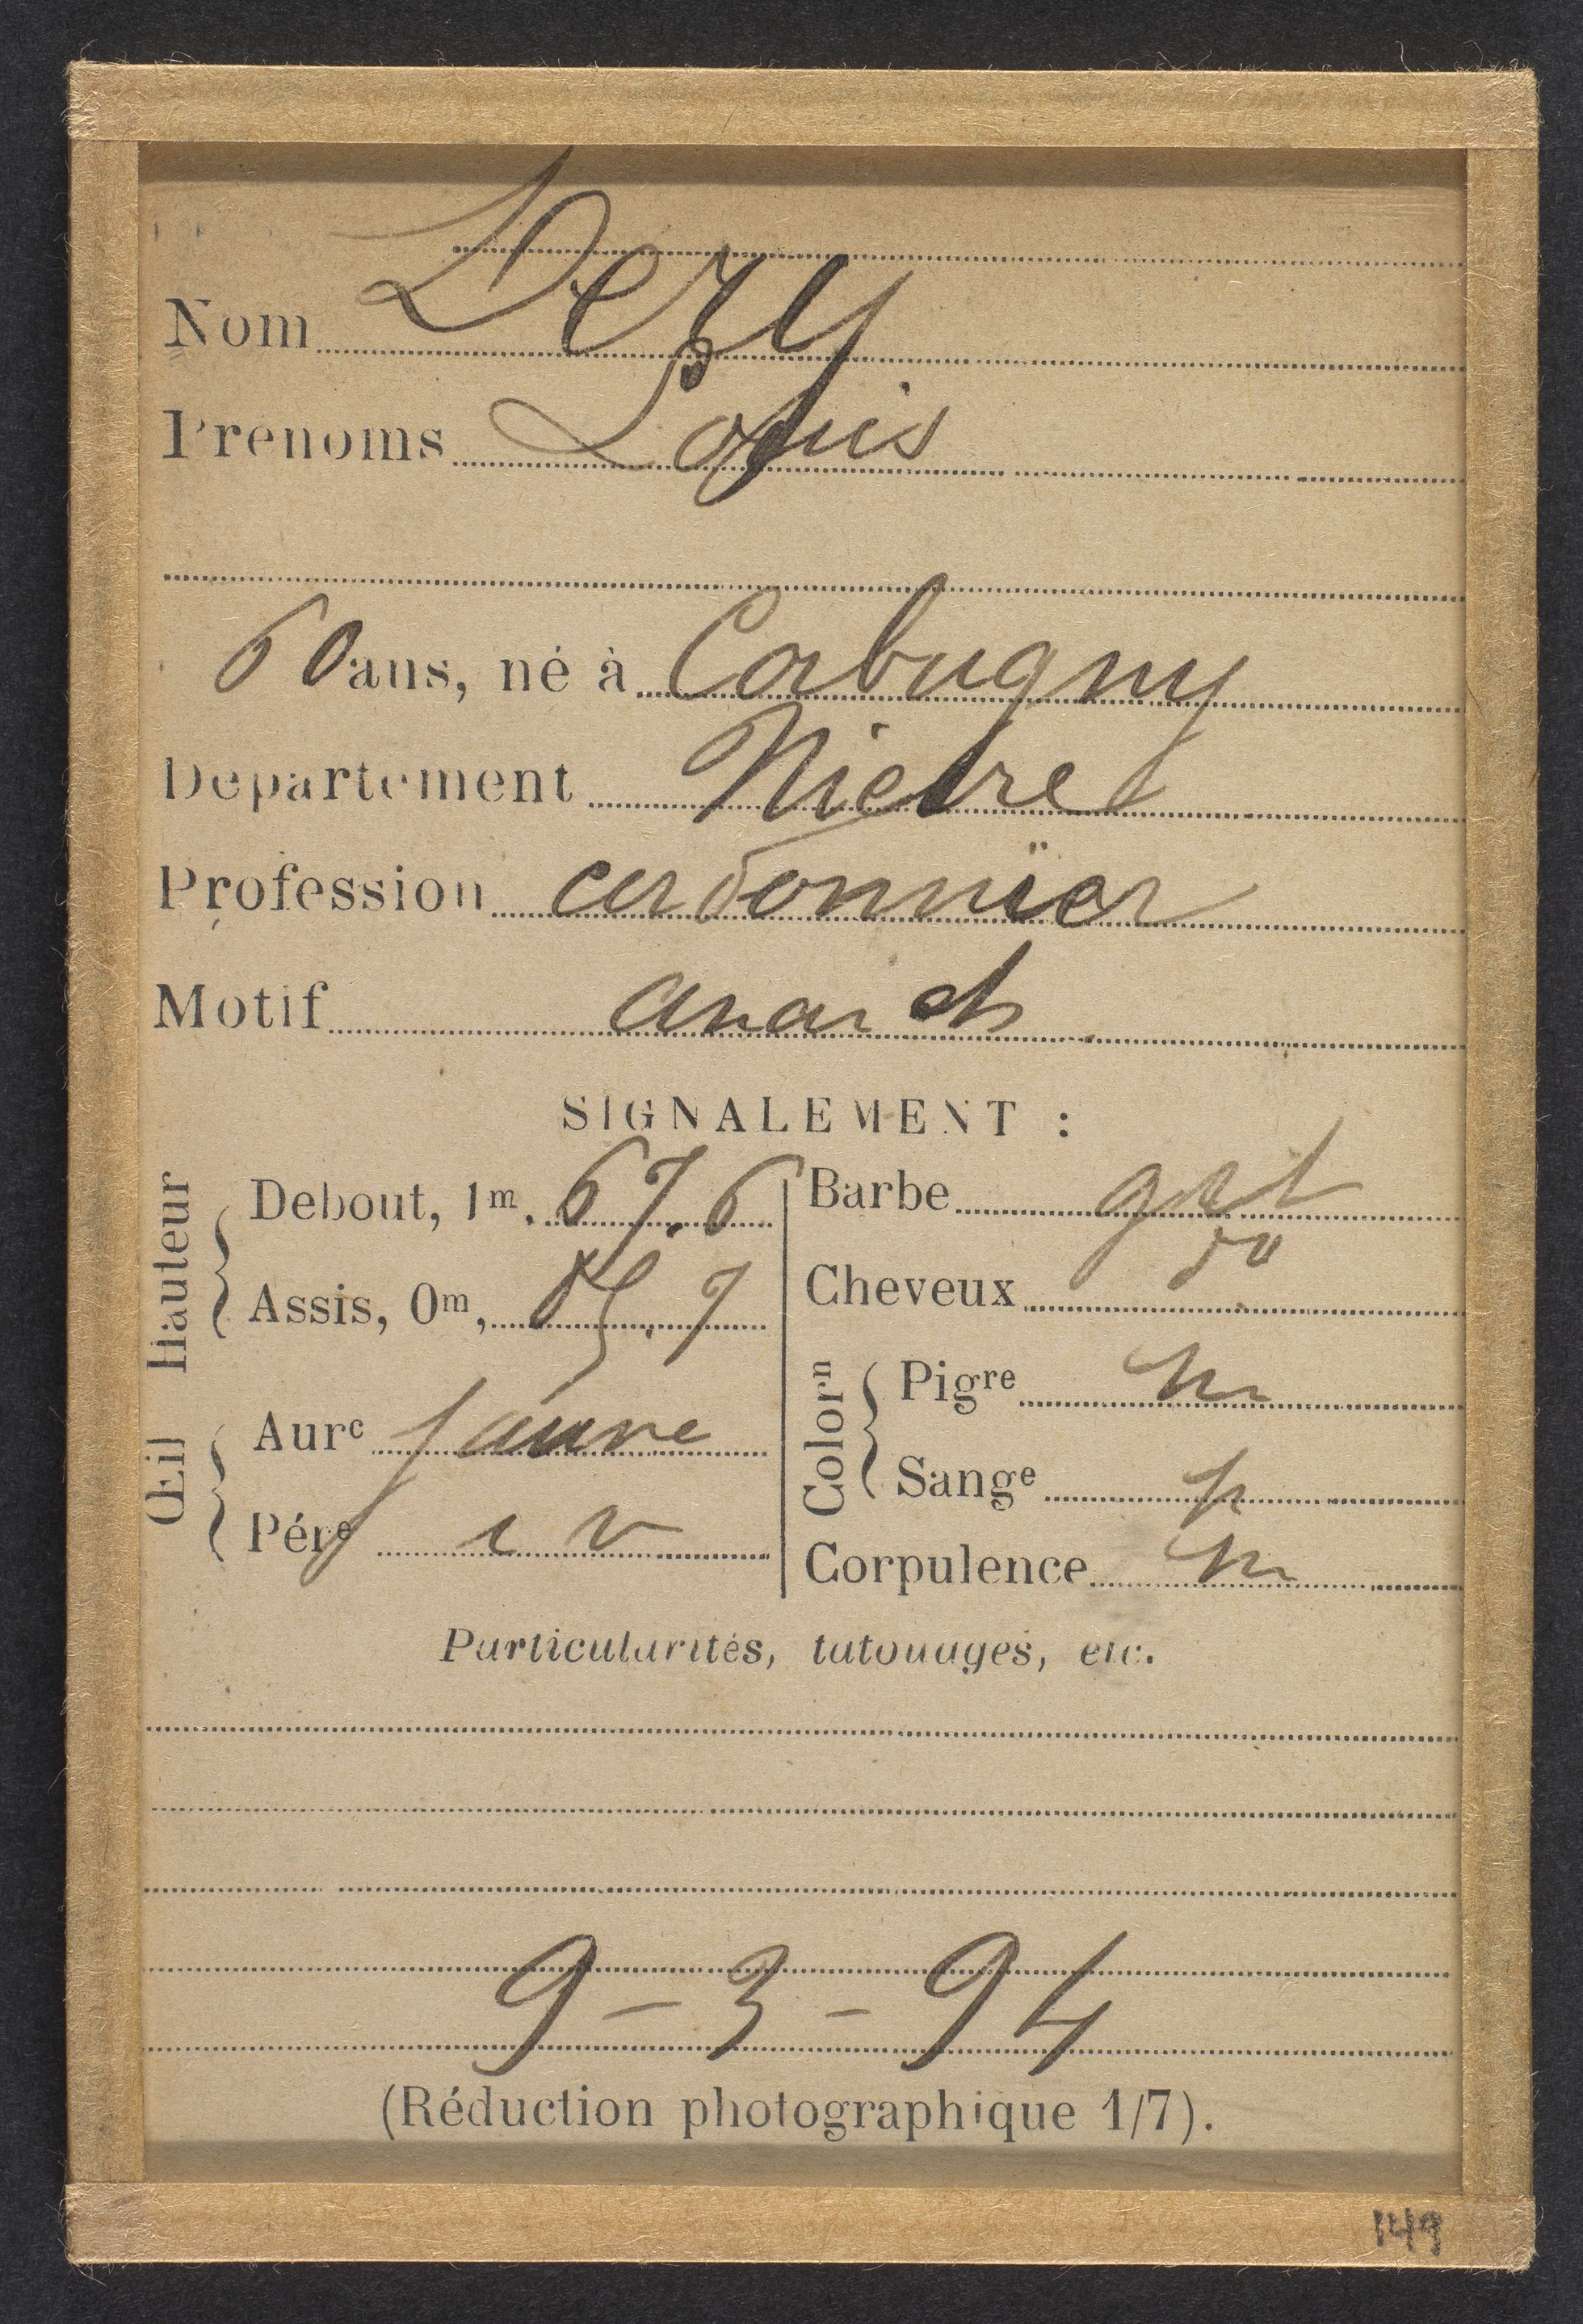 Nom Dery
Prénoms Louis
60 ans, né à Corbugny
Département Nièvre
Profession cordonnier
Motif anarch
SIGNALEMENT :
Hauteur
Debout, 1m, 67.6
Assis, 0m, 85.7
Œil
Aure jaune
Pére i v
Barbe gst
Cheveux do
Colorn
Pigre m
Sange p
Corpulence m
Particularités, tatouages, etc.
9-3-94
(Réduction photographique 1/7).
149